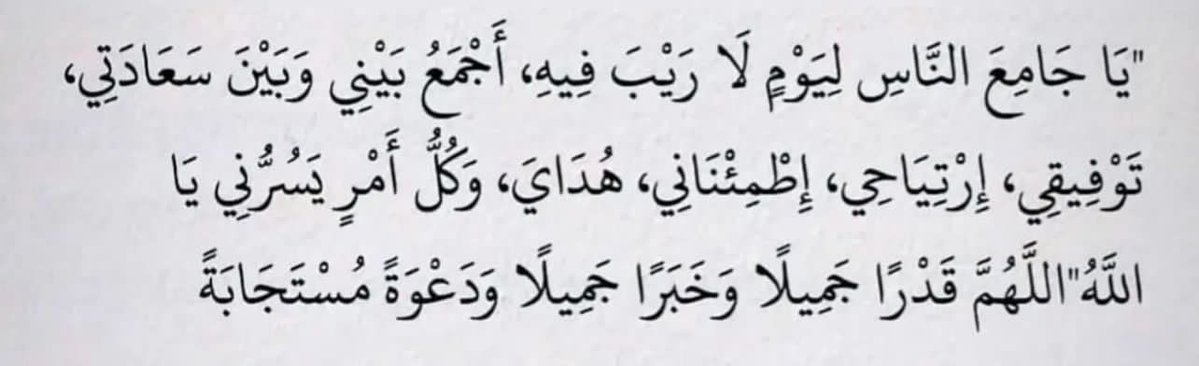 "يَا جَامِعَ النَّاسِ لِيَوْمٍ لَا رَيْبَ فِيهِ، أَجْمَعُ بَيْنِي وَبَيْنَ سَعَادَتِي،
تَوْفِيقِي، إِرْتِيَاحِي، إِطْمِئْنَانِي، هُدَايَ، وَكُلُّ أَمْرٍ يَسُرُّنِي يَا
اللَّهُ"اللَّهُمَّ قَدْرًا جَمِيلًا وَخَبَرًا جَمِيلًا وَدَعْوَةً مُسْتَجَابَةً